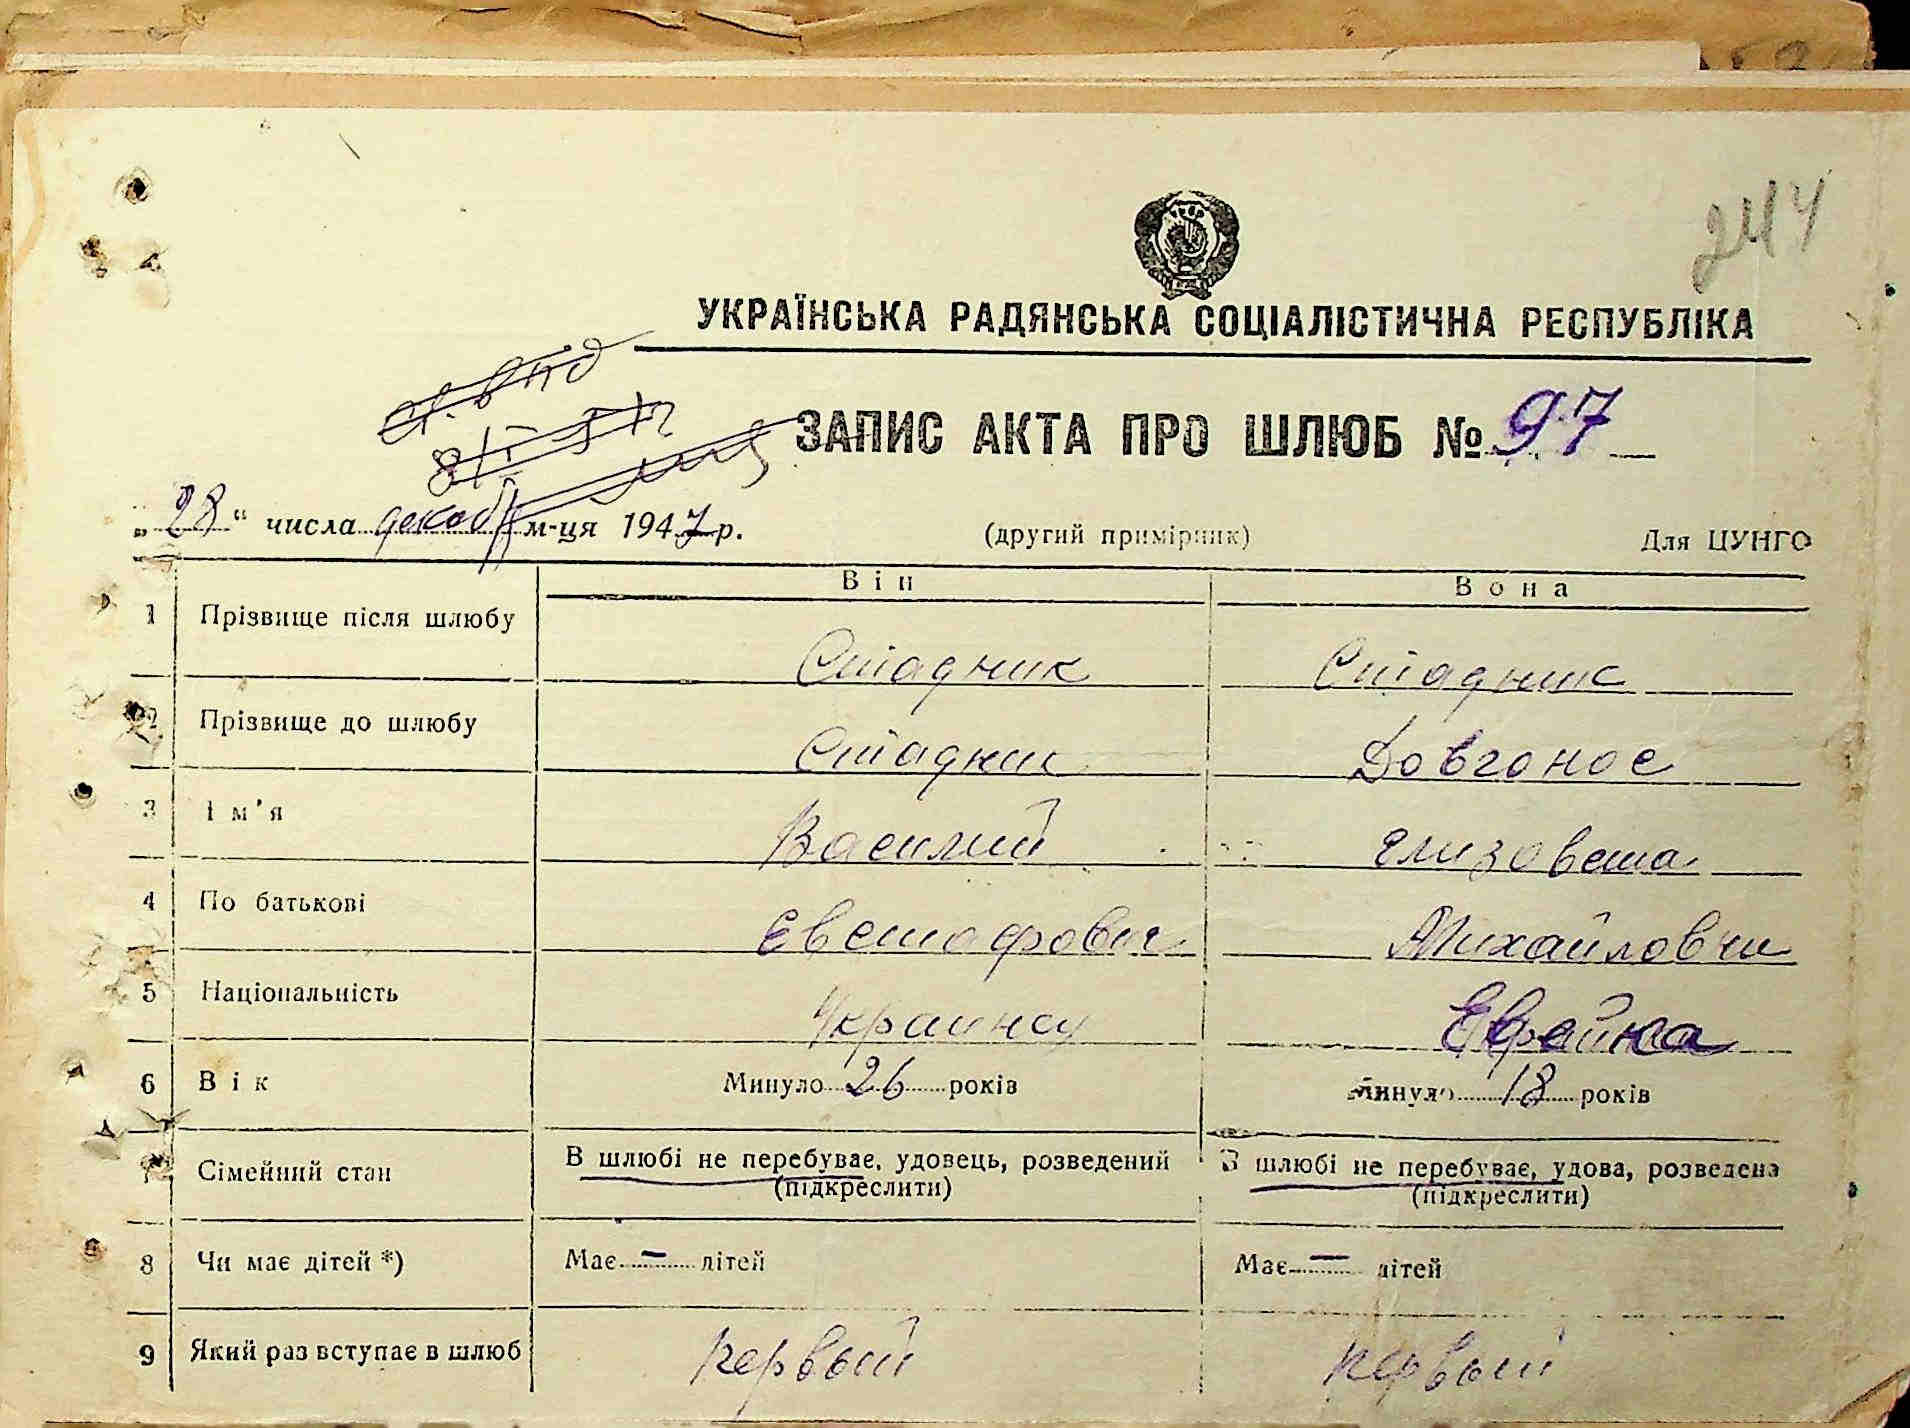 244
УКРАЇНСЬКА РАДЯНСЬКА СОЦІАЛІСТИЧНА РЕСПУБЛІКА
ЗАПИС АКТА ПРО ШЛЮБ № 97
„28“ числа декабр м-ця 1947 р. (другий примірник) Для ЦУНГО
Він Вона
1 Прізвище після шлюбу Стадник Стадник
2 Прізвище до шлюбу Стадник Довгонос
3 Ім'я Василий Елизовета
4 По батькові Евстафович Михайловн
5 Національність Украинец Еврейка
6 Вік Минуло 26 років Минуло 18 років
7 Сімейний стан В шлюбі не перебуває, удовець, розведений В шлюбі не перебуває, удова, розведена
(підкреслити) (підкреслити)
8 Чи має дітей *) Має — дітей Має — дітей
9 Який раз вступає в шлюб первый первый